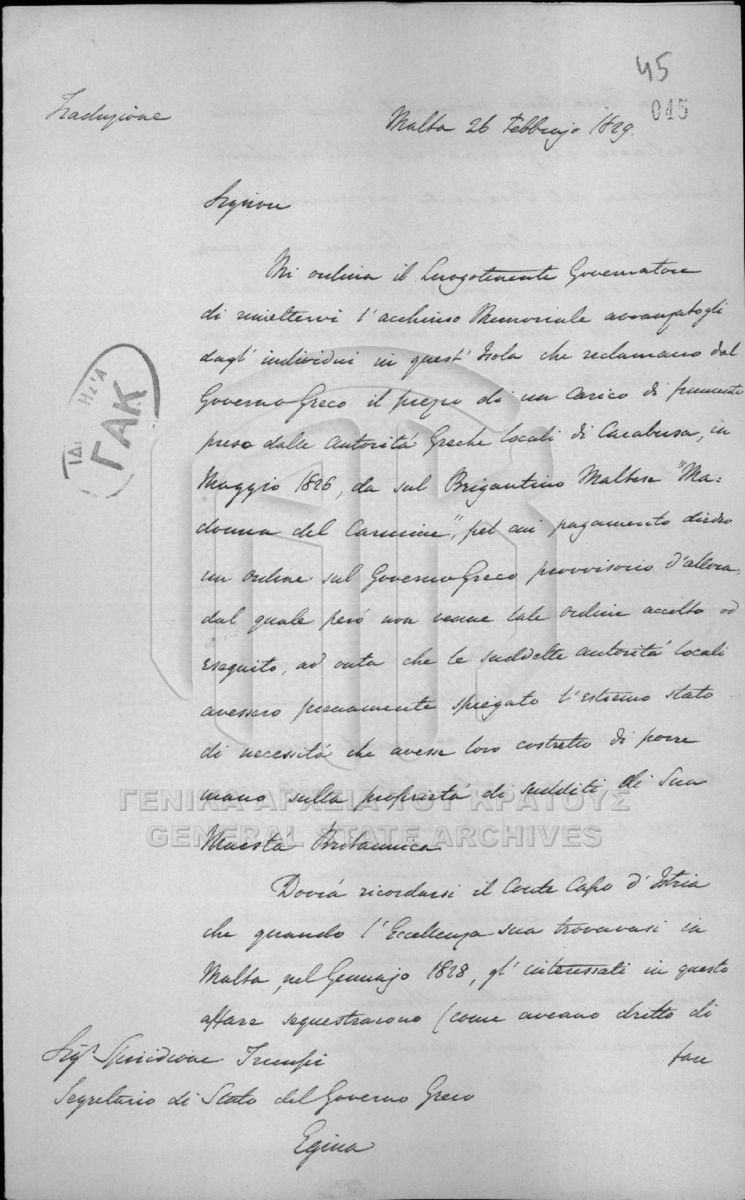 45
045
Traduzione
Malta 26 Febbrajo 1829.
Signore
Mi ordina il Luogotenente Governatore
di rimettervi l'acchiuso Memoriale avanzatogli
dagl'individui in quest'Isola che reclamano dal
Governo Greco il prezzo di un Carico di frumento
preso dalle autorità Greche locali di Carabusa, in
Maggio 1826, da sul Brigantino Maltese "Ma-
donna del Carmine", pel cui pagamento diedro
un ordine sul Governo Greco provvisorio d'allora,
dal quale però non venne tale ordine accetto od
eseguito, ad onta che le suddette autorità locali
avessero pienamente spiegato l'estremo stato
di necessità che avesse loro costretto di porre
mano sulla proprietà di sudditi di Sua
Maestà Britannica
Dovrà ricordarsi il Conte Capo d'Istria
che quando l'Eccellenza sua trovavasi in
Malta, nel Gennajo 1828, gl'interessati in questo
affare sequestrarono (come aveano dritto di
fare
Sigr. Spiridione Tricupi
Segretario di Stato del Governo Greco
Egina
ΓΑΚ
ΓΕΝΙΚΑ ΑΡΧΕΙΑ ΤΟΥ ΚΡΑΤΟΥΣ
GENERAL STATE ARCHIVES